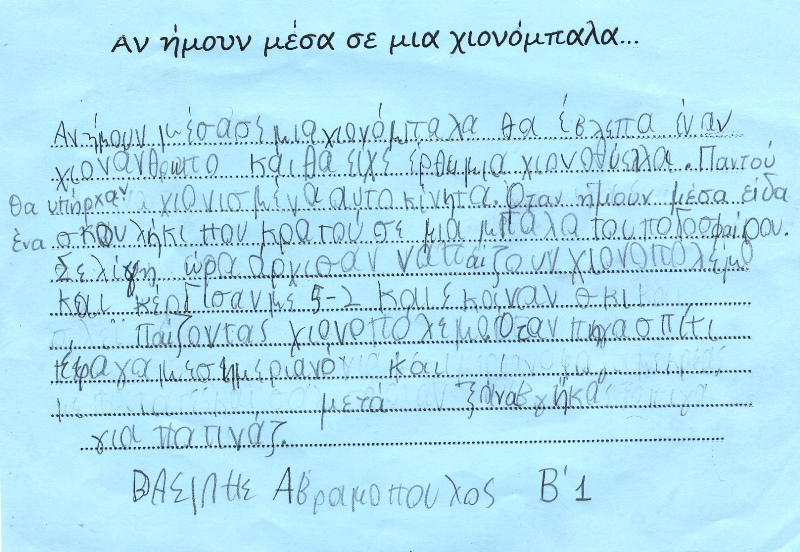 Αν ήμουν μέσα σε μια χιονόμπαλα...
Αν ήμουν μέσα σε μια χιονόμπαλα θα έβλεπα έναν
χιονάνθρωπο και θα είχε έρθει μια χιονοθύελλα. Παντού
θα υπήρχαν χιονισμένα αυτοκίνητα. Όταν ήμουν μέσα είδα
ένα σκουλήκι που κρατούσε μια μπάλα του ποδοσφαίρου.
Σε λίγη ώρα άρχισαν να παίζουν χιονοπόλεμο
και κέρδισαν με 5-2 και έκαναν σκι
παίζοντας χιονοπόλεμο. Όταν πήγα σπίτι
έφαγα μεσημεριανό και
μετά ξαναβγήκα
για πατινάζ.
ΒΑΣΙΛΗΣ Αβραμοπουλος Β'1